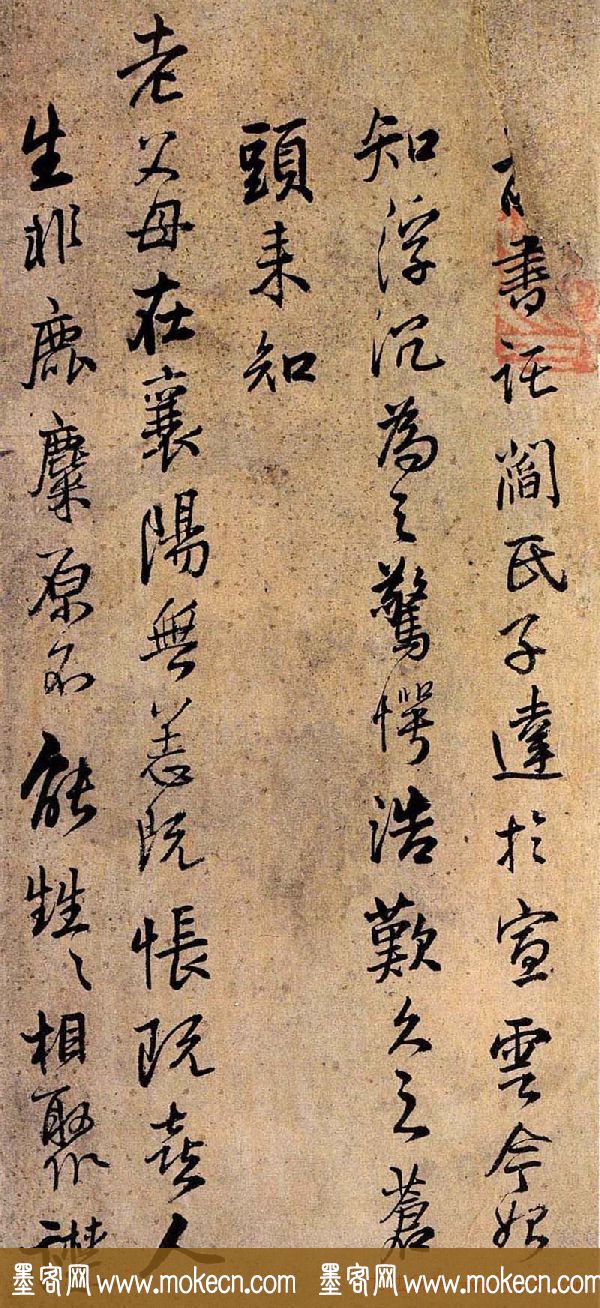 書託閻氏子達於宣雲今始
知浮沉為之驚愕浩歎久之蒼
頭來知
老父母在襄陽無恙既悵既喜人
生非鹿麋原不能甡〻相聚
墨客网 www.mokecn.com 墨客网 www.mokecn.com